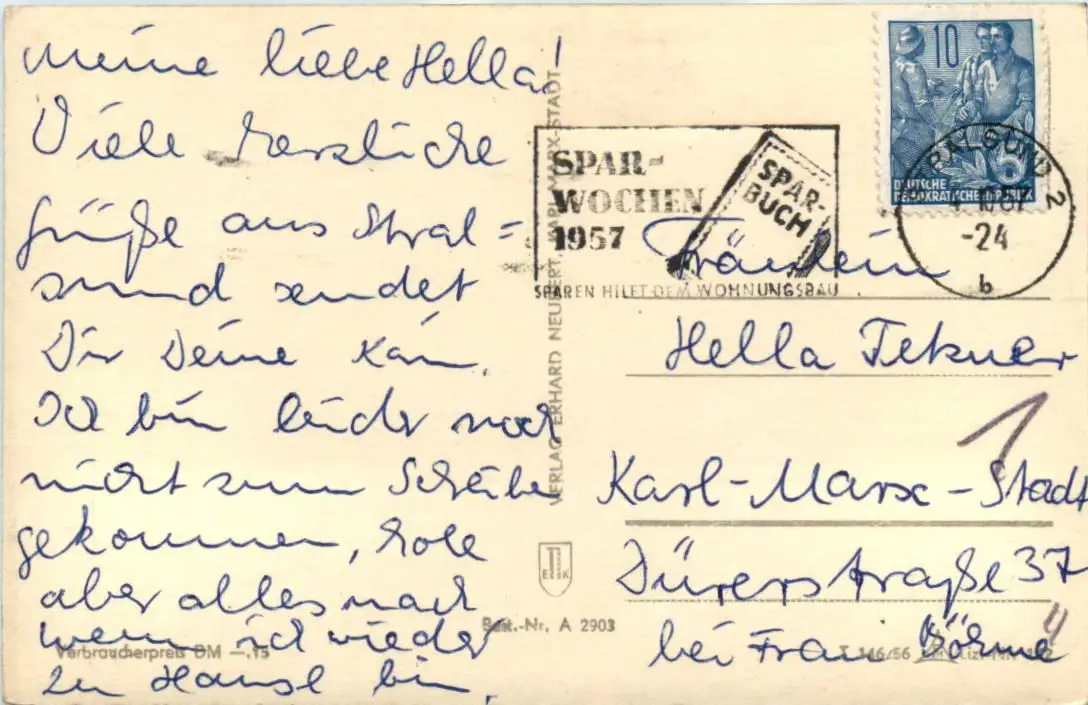 Meine liebe Hella!
Viele herzliche
Grüße aus Stral=
sund sendet
Dir Deine Kari.
Ich bin leider noch
nicht zum Schreiben
gekommen, hole
aber alles nach
wenn ich wieder
zu Hause bin.
Verbraucherpreis DM —,15
VERLAG ERHARD NEUBERT, KARL-MARX-STADT
E K
Best.-Nr. A 2903
SPAR-
WOCHEN
1957
SPAR-
BUCH
SPAREN HILFT DEM WOHNUNGSBAU
10
DEUTSCHE
DEMOKRATISCHE REPUBLIK
RALSUND 2
-24
b
Fräulein
Hella
1
Karl-Marx-Stadt
Dürerstraße 37
bei Frau Böhme
T 146/56